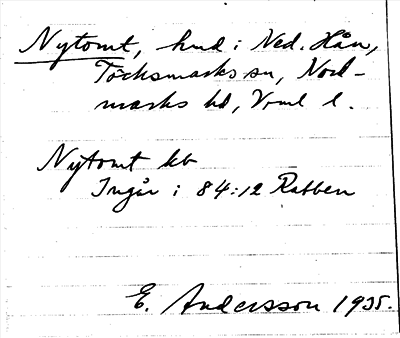 Nytomt, hmd i Ned. Hån,
Töcksmarks sn, Nord-
marks hd, Vrml l.
Nytomt kb
Ingår i 84:12 Rabben
E. Andersson 1935.